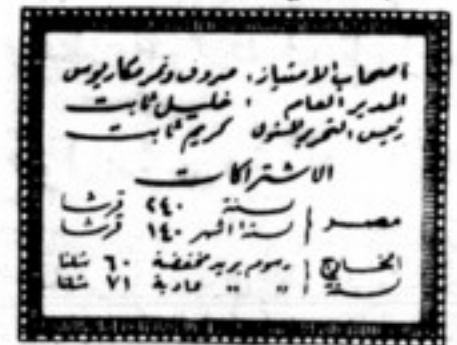 اصحاب الامتياز: صروف ونمر ومكاريوس
المدير العام : خليل ثابت
رئيس التحرير المسئول كريم ثابت
الاشتراكات
مصر | سنة ٢٤٠ قرشا
ستة اشهر ١٤٠ قرشا
الخارج | رسوم بريد مخفضة ٦٠ شلنا
سنة | " " عادية ٧١ شلنا